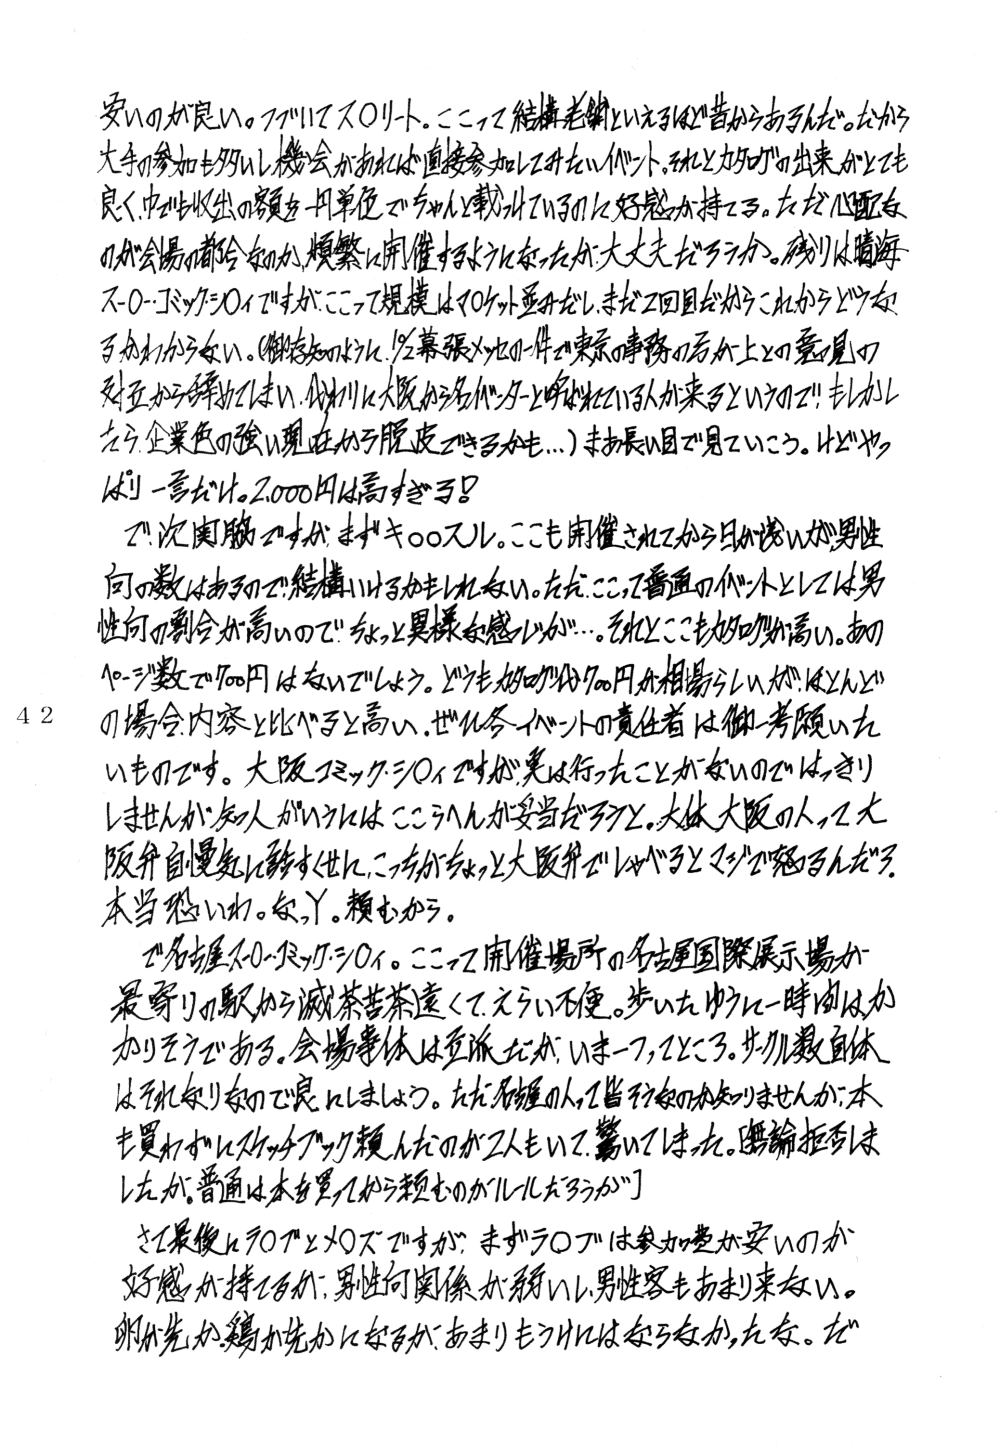 安いのが良い。つづいてス○リート。ここって結構老舗といえるほど昔からあるんだ。だから
大手の参加も多いし機会があれば直接参加してみたいイベント。それとカタログの出来がとても
良く、中でも収出の額を一円単色でちゃんと載っけているのに好感が持てる。ただ心配な
のが会場の都合なのか、頻繁に開催するようになったが、大丈夫だろうか。残りは晴海
ス-○・コミック・シ○ィですが、ここって規模はマ○ケット並みだし、まだ2回目だからこれからどうな
るかわからない。(御存知のように、1%2幕張メッセの一件で東京の事務の方が上との意見の
対立から辞めてしまい、代わりに大阪から名イベンターと呼ばれている人が来るというので、もしかし
たら、企業色の強い現在から脱皮できるかも…)まあ長い目で見ていこう。けどやっ
ぱり一言だけ。2,000円は高すぎる!
で、次関脇ですが、まずキ○○スル。ここも開催されてから日が浅いが、男性
向の数はあるので、結構いけるかもしれない。ただ、ここって普通のイベントとしては男
性向の割合が高いので、ちょっと異様な感じが…。それとここもカタログが高い。あの
ページ数で700円はないでしょう。どうもカタログ代700円が相場らしいが、ほとんど
の場合、内容と比べると高い。ぜひ各イベントの責任者は御一考願いた
いものです。大阪コミック・シ○ィですが、実は行ったことがないのではっきり
しませんが、知人がいうにはここらへんが妥当だろうと。大体大阪の人って大
阪弁自慢気に話すくせに、こっちがちょっと大阪弁でしゃべるとマジで怒るんだろ。
本当恐いわ。なっY。頼むから。
で名古屋ス-○・コミック・シ○ィ。ここって開催場所の名古屋国際展示場が
最寄りの駅から滅茶苦茶遠くて、えらい不便。歩いたゆうに一時間はか
かりそうである。会場事体は立派だが、いま一つってところ。サークル数自体
はそれなりなので良にしましょう。ただ名古屋の人って皆そうなのか知りませんが、本
も買わずにスケッチブック頼んだのが2人もいて、驚いてしまった。[無論拒否しま
したが。普通は本を買ってから頼むのがルールだろうが]
さて最後にラ○ブとメ○ズですが、まずラ○ブは参加費が安いのが
好感が持てるが、男性向関係が弱いし、男性客もあまり来ない。
卵が先か、鶏が先かになるが、あまりもうけにはならなかったな。だ
42